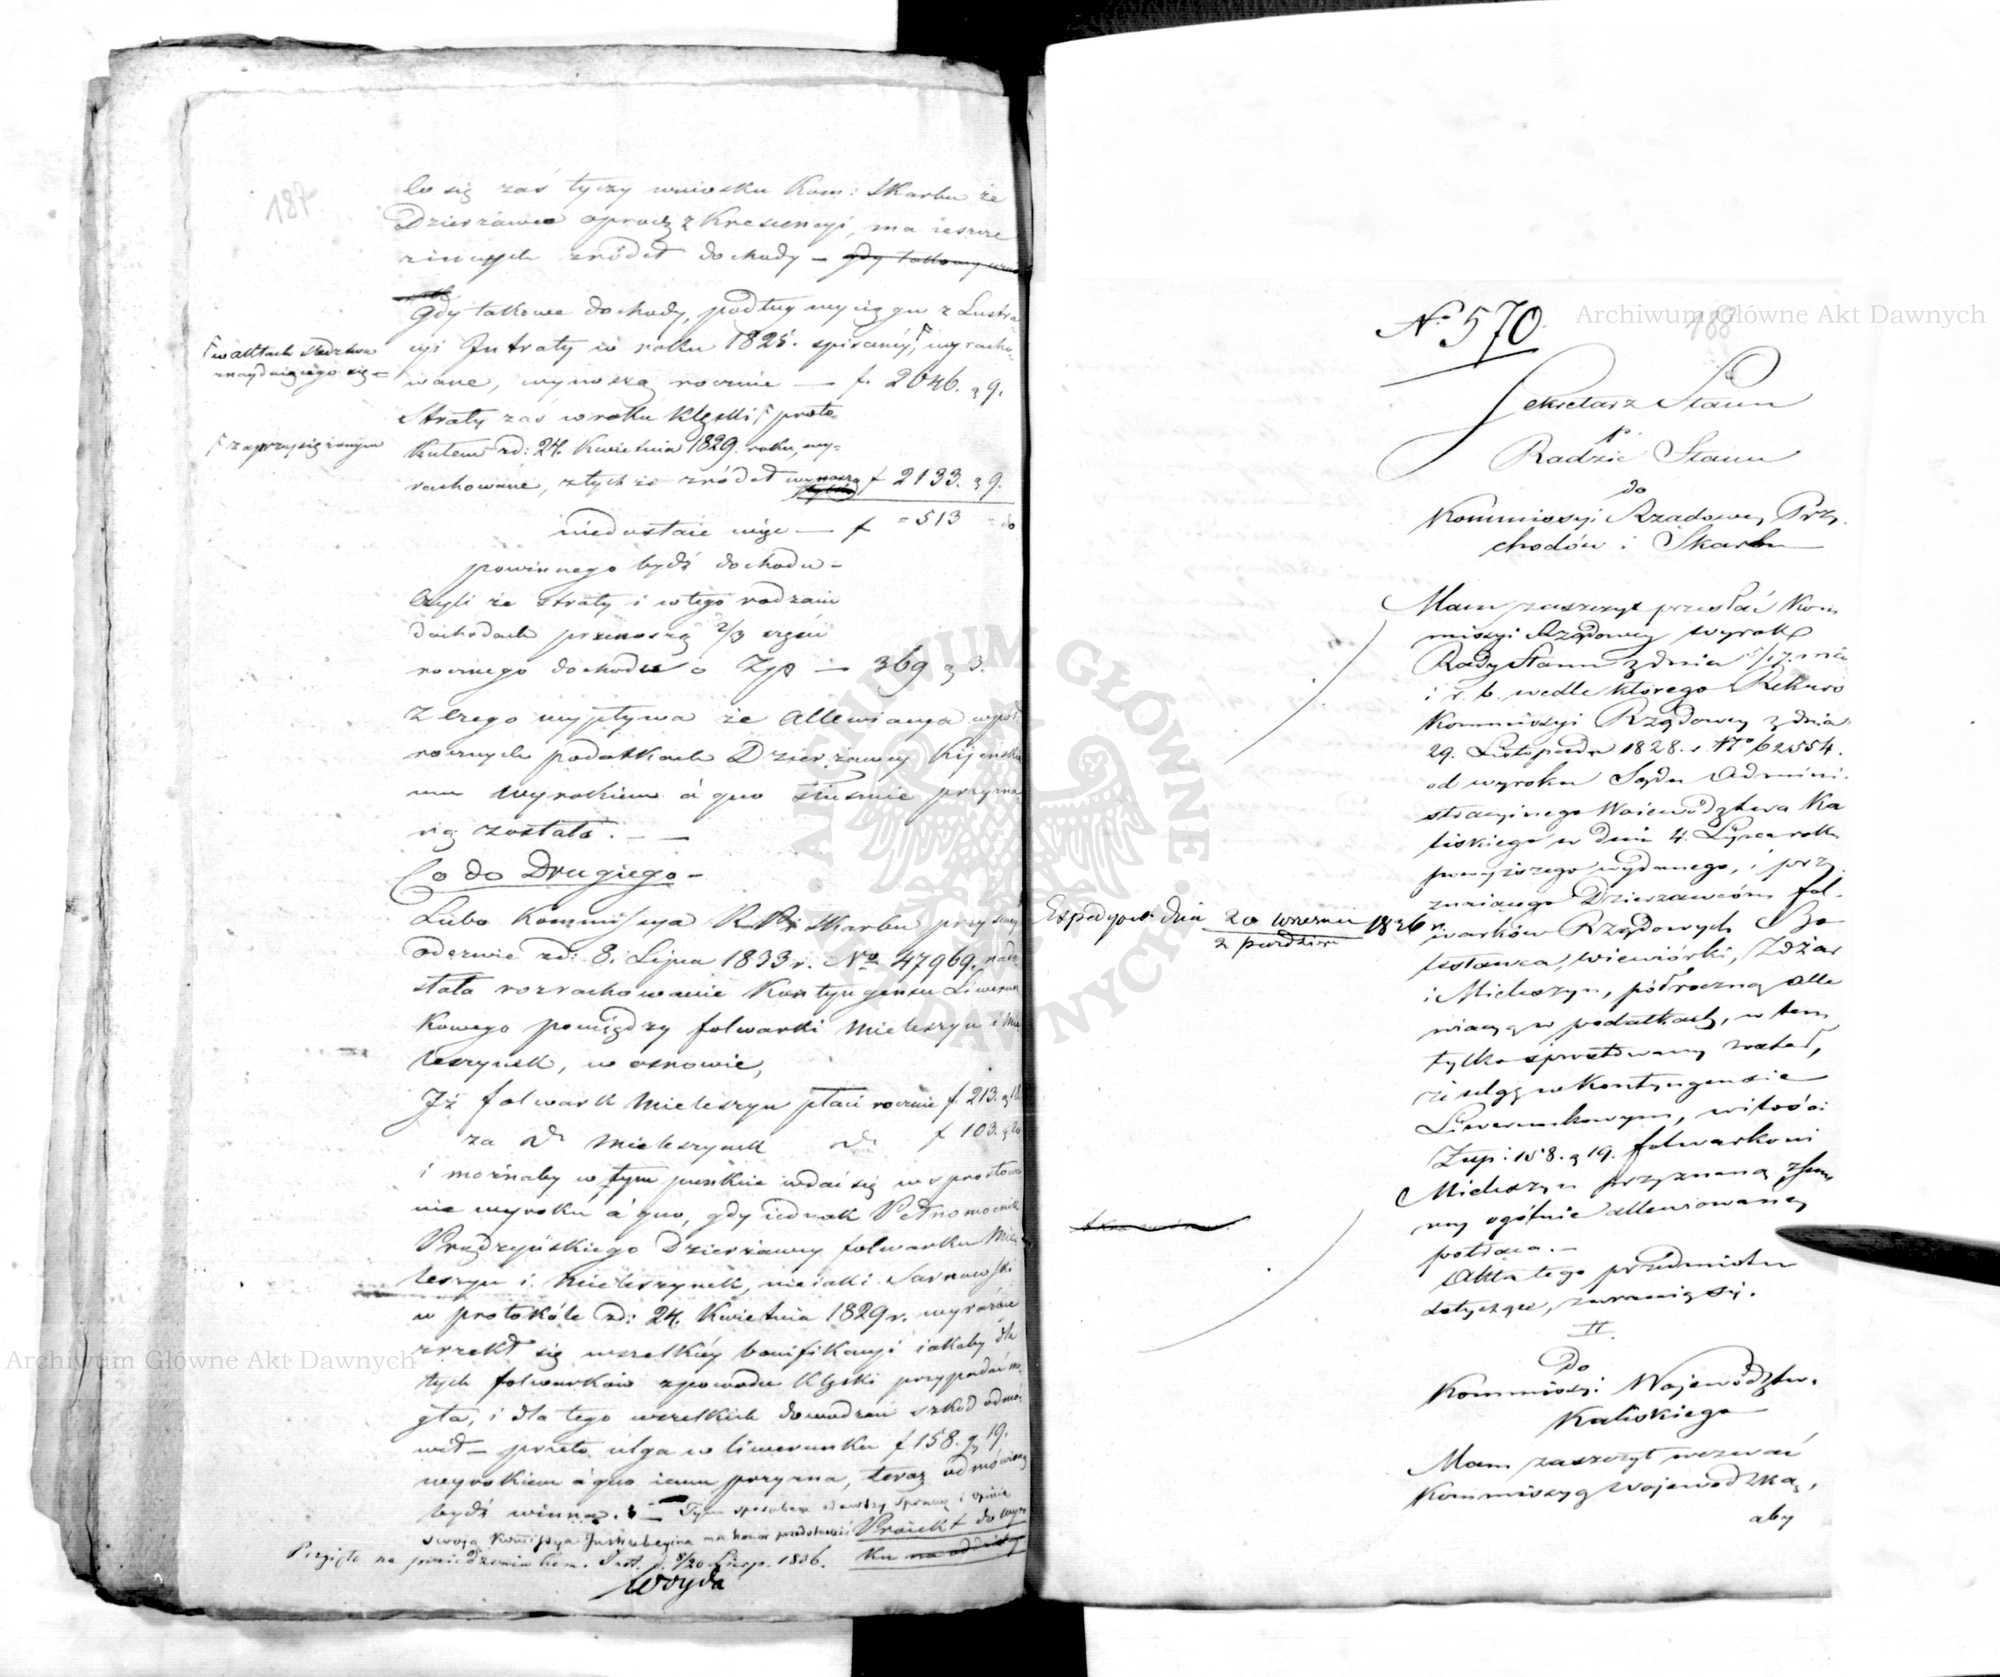 187
Co się zaś tyczy wniosku Kom: Skarbu że
Dzierżawca oprócz z Krescencyi, ma ieszcze
z innych źródeł dochody – gdy takowe
Gdy takowe dochody, podług wyciągu z Lustra
cyi Intraty w roku 1825. spisanéy, wyracho-
w aktach śledztwa
znayduiącego się
wane, wynoszą rocznie — f. 2646. g 9.
Straty zaś w roku Klęski proto-
zaprzysiężonym
kułem zd: 24. Kwietnia 1829. roku, wy-
rachowane, z tychże źródeł wynoszą f 2133. g 9.
niedostaie więc — f = 513 = do
powinnego bydź dochodu –
Czyli że straty i w tego rodzaiu
dochodach przenoszą 2/3 części
rocznego dochodu o Złp — 369 g 3.
Z czego wypływa że allewiacya w pół
rocznych podatkach Dzierżawcy Kijeńskie
mu wyrokiem à quo słusznie przyzna
ną została. — —
Co do Drugiego –
Lubo Kommissya R. P. i Skarbu przy swey
odezwie zd: 8. Lipca 1833 r. No 47969. nade
słała rozrachowanie Kontyngensu Liwerun
kowego pomiędzy folwarki Mieleszyn i Mie
leszynek, w osnowie,
Iż folwark Mieleszyn płaci rocznie f. 213. g 18
za do Mieleszynek do f 103. g 20
i możnaby w tym punkcie wdać się w sprostowa
nie wyroku à quo, gdy iednak Pełnomocnik
Prądzyńskiego Dzierżawcy folwarku Mie
leszyn i Mieleszynek, nieiaki Sarnowski
w protokóle zd: 24. Kwietnia 1829 r. wyraźnie
zrzekł się wszelkiéy bonifikacyi iakaby dla
tych folwarków z powodu Klęski przypadać mo
gła, i dla tego wszelkich dowodzeń szkód odmó-
wił – przeto ulga w liwerunku f 158. g 19.
wyrokiem à quo iemu przyzna, teraz odmówioną
bydź winna. — Tym sposobem obiawszy sprawę i opinię
swoią Kommissya Instrukcyina ma honor przedstawić Proiekt do wyro
ku na oddziel
Przyięto na posiedzeniu Kom. Inst. d. 8/20 Sierp. 1836.
Woyda
No 570.
188
Sekretarz Stanu
Radzca Stanu
do
Kommissyi Rządowey Przy
chodów i Skarbu
Mam zaszczyt przesłać Kom
missyi Rządowey wyrok
Rady Stanu z dnia 5/17. mca
i r. b. wedle którego Rekurs
Kommissyi Rządowey z dnia
29. Listopada 1828. r. No 62554.
od wyroku Sądu Admini-
stracyinego Województwa Ka
liskiego w dniu 4. Lipca roku
powyższego wydanego, i przy
znaiącego Dzierżawcom fol-
warków Rządowych Bo
lesławca, Wiewiórki, Zdżar
i Mieleszyn, półroczną alle
wiacyą w podatkach, w tem
tylko sprostowany został,
że ulgę w Kontyngensie
Liwerunkowym, w ilości
Złp: 158. g 19. folwarkowi
Mieleszyn przyznaną, z Sum
my ogólnie allewiowaney
potrąca. –
Akta tego przedmiotu
dotyczące, zwracaią się.
II.
do
Kommissyi Województwa
Kaliskiego
Mam zaszczyt wezwać
Kommissyą Wojewódzką,
aby
Expedyow. dnia 20 Wrzesnia / 2 Pazdzier 1836 r.
Archiwum Główne Akt Dawnych
Archiwum Główne Akt Dawnych
ARCHIWUM GŁÓWNE AKT DAWNYCH